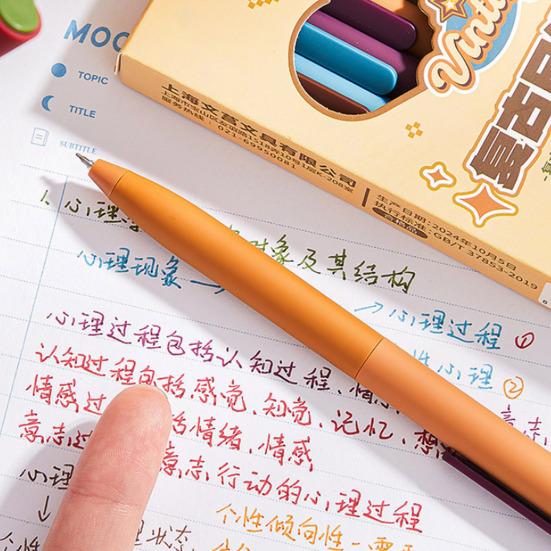 MOO
TOPIC
TITLE
SUBTITLE
Vint
复古
上海文荟文具有限公司
服务热线: 021-69150081
生产日期:2024年10月5日
执行标准:GB/T 37853-2019
合格品
1. 心理 对象及其结构
心理现象 → → 心理过程 ①
性心理 ②
心理过程包括认知过程、情 意志
认知过程包括感觉、知觉、记忆、想
情感过 括情绪、情感
意志 意志行动的心理过程
心理 个性倾向性—需
理状态